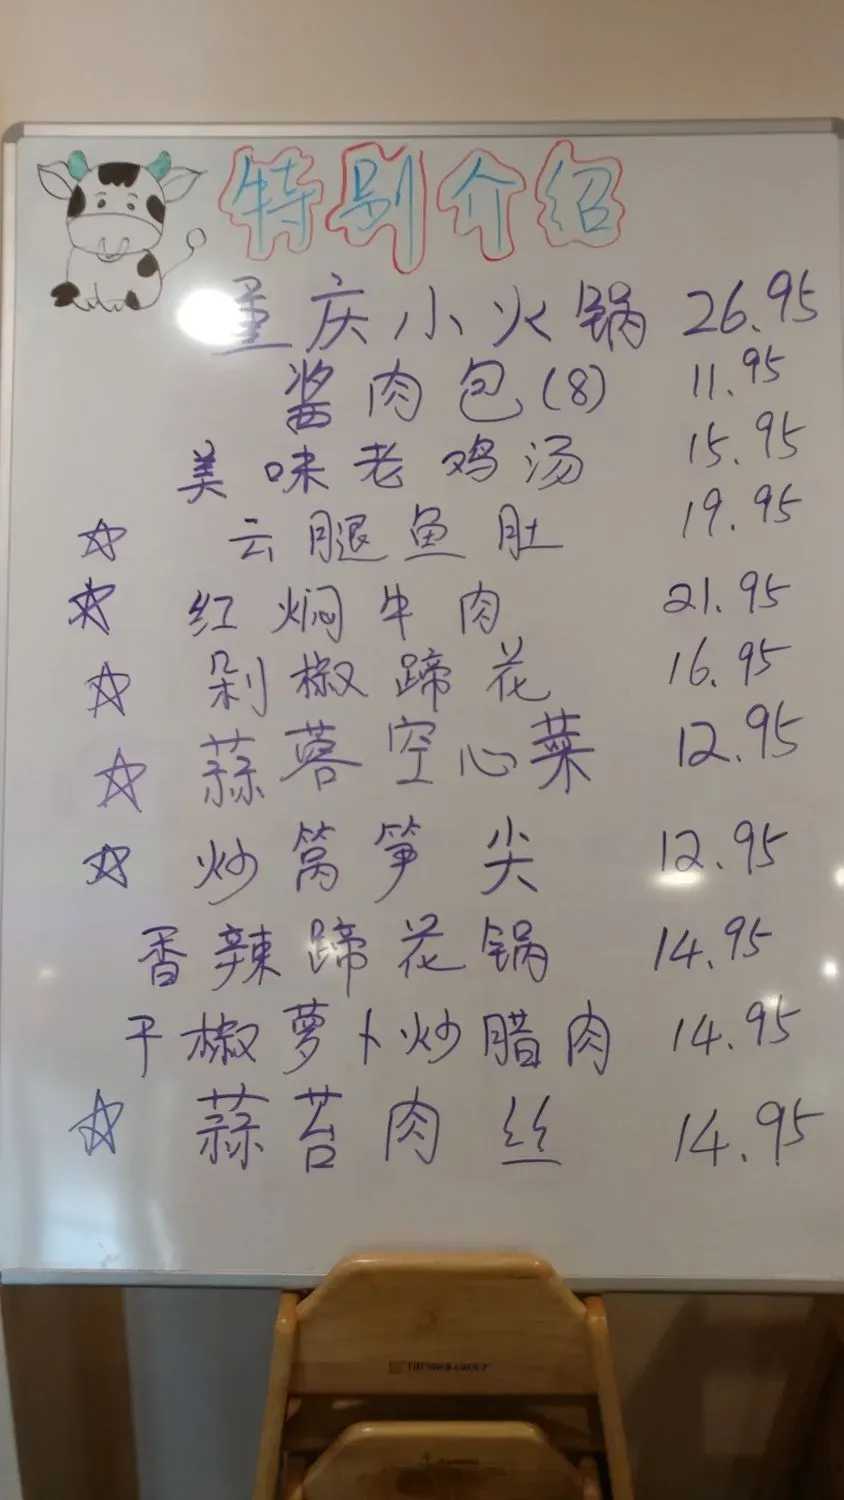 特别介绍
重庆小火锅 26.95
酱肉包(8) 11.95
美味老鸡汤 15.95
☆ 云腿鱼肚 19.95
☆ 红焖牛肉 21.95
☆ 剁椒蹄花 16.95
☆ 蒜蓉空心菜 12.95
☆ 炒窝笋尖 12.95
香辣蹄花锅 14.95
干椒萝卜炒腊肉 14.95
☆ 蒜苔肉丝 14.95
THUNDER GROUP